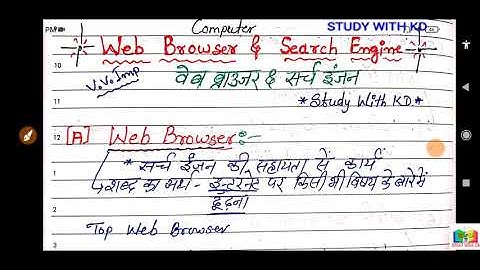 Computer
STUDY WITH KD
Web Browser & Search Engine
V.V.Imp
वेब ब्राउजर & सर्च इंजन
*Study With KD*
[A] Web Browser:-
* सर्च इंजन की सहायता से कार्य
शब्द का अर्थ - इन्टरनेट पर किसी भी विषय के बारे में
ढूढ़ना
Top Web Browser